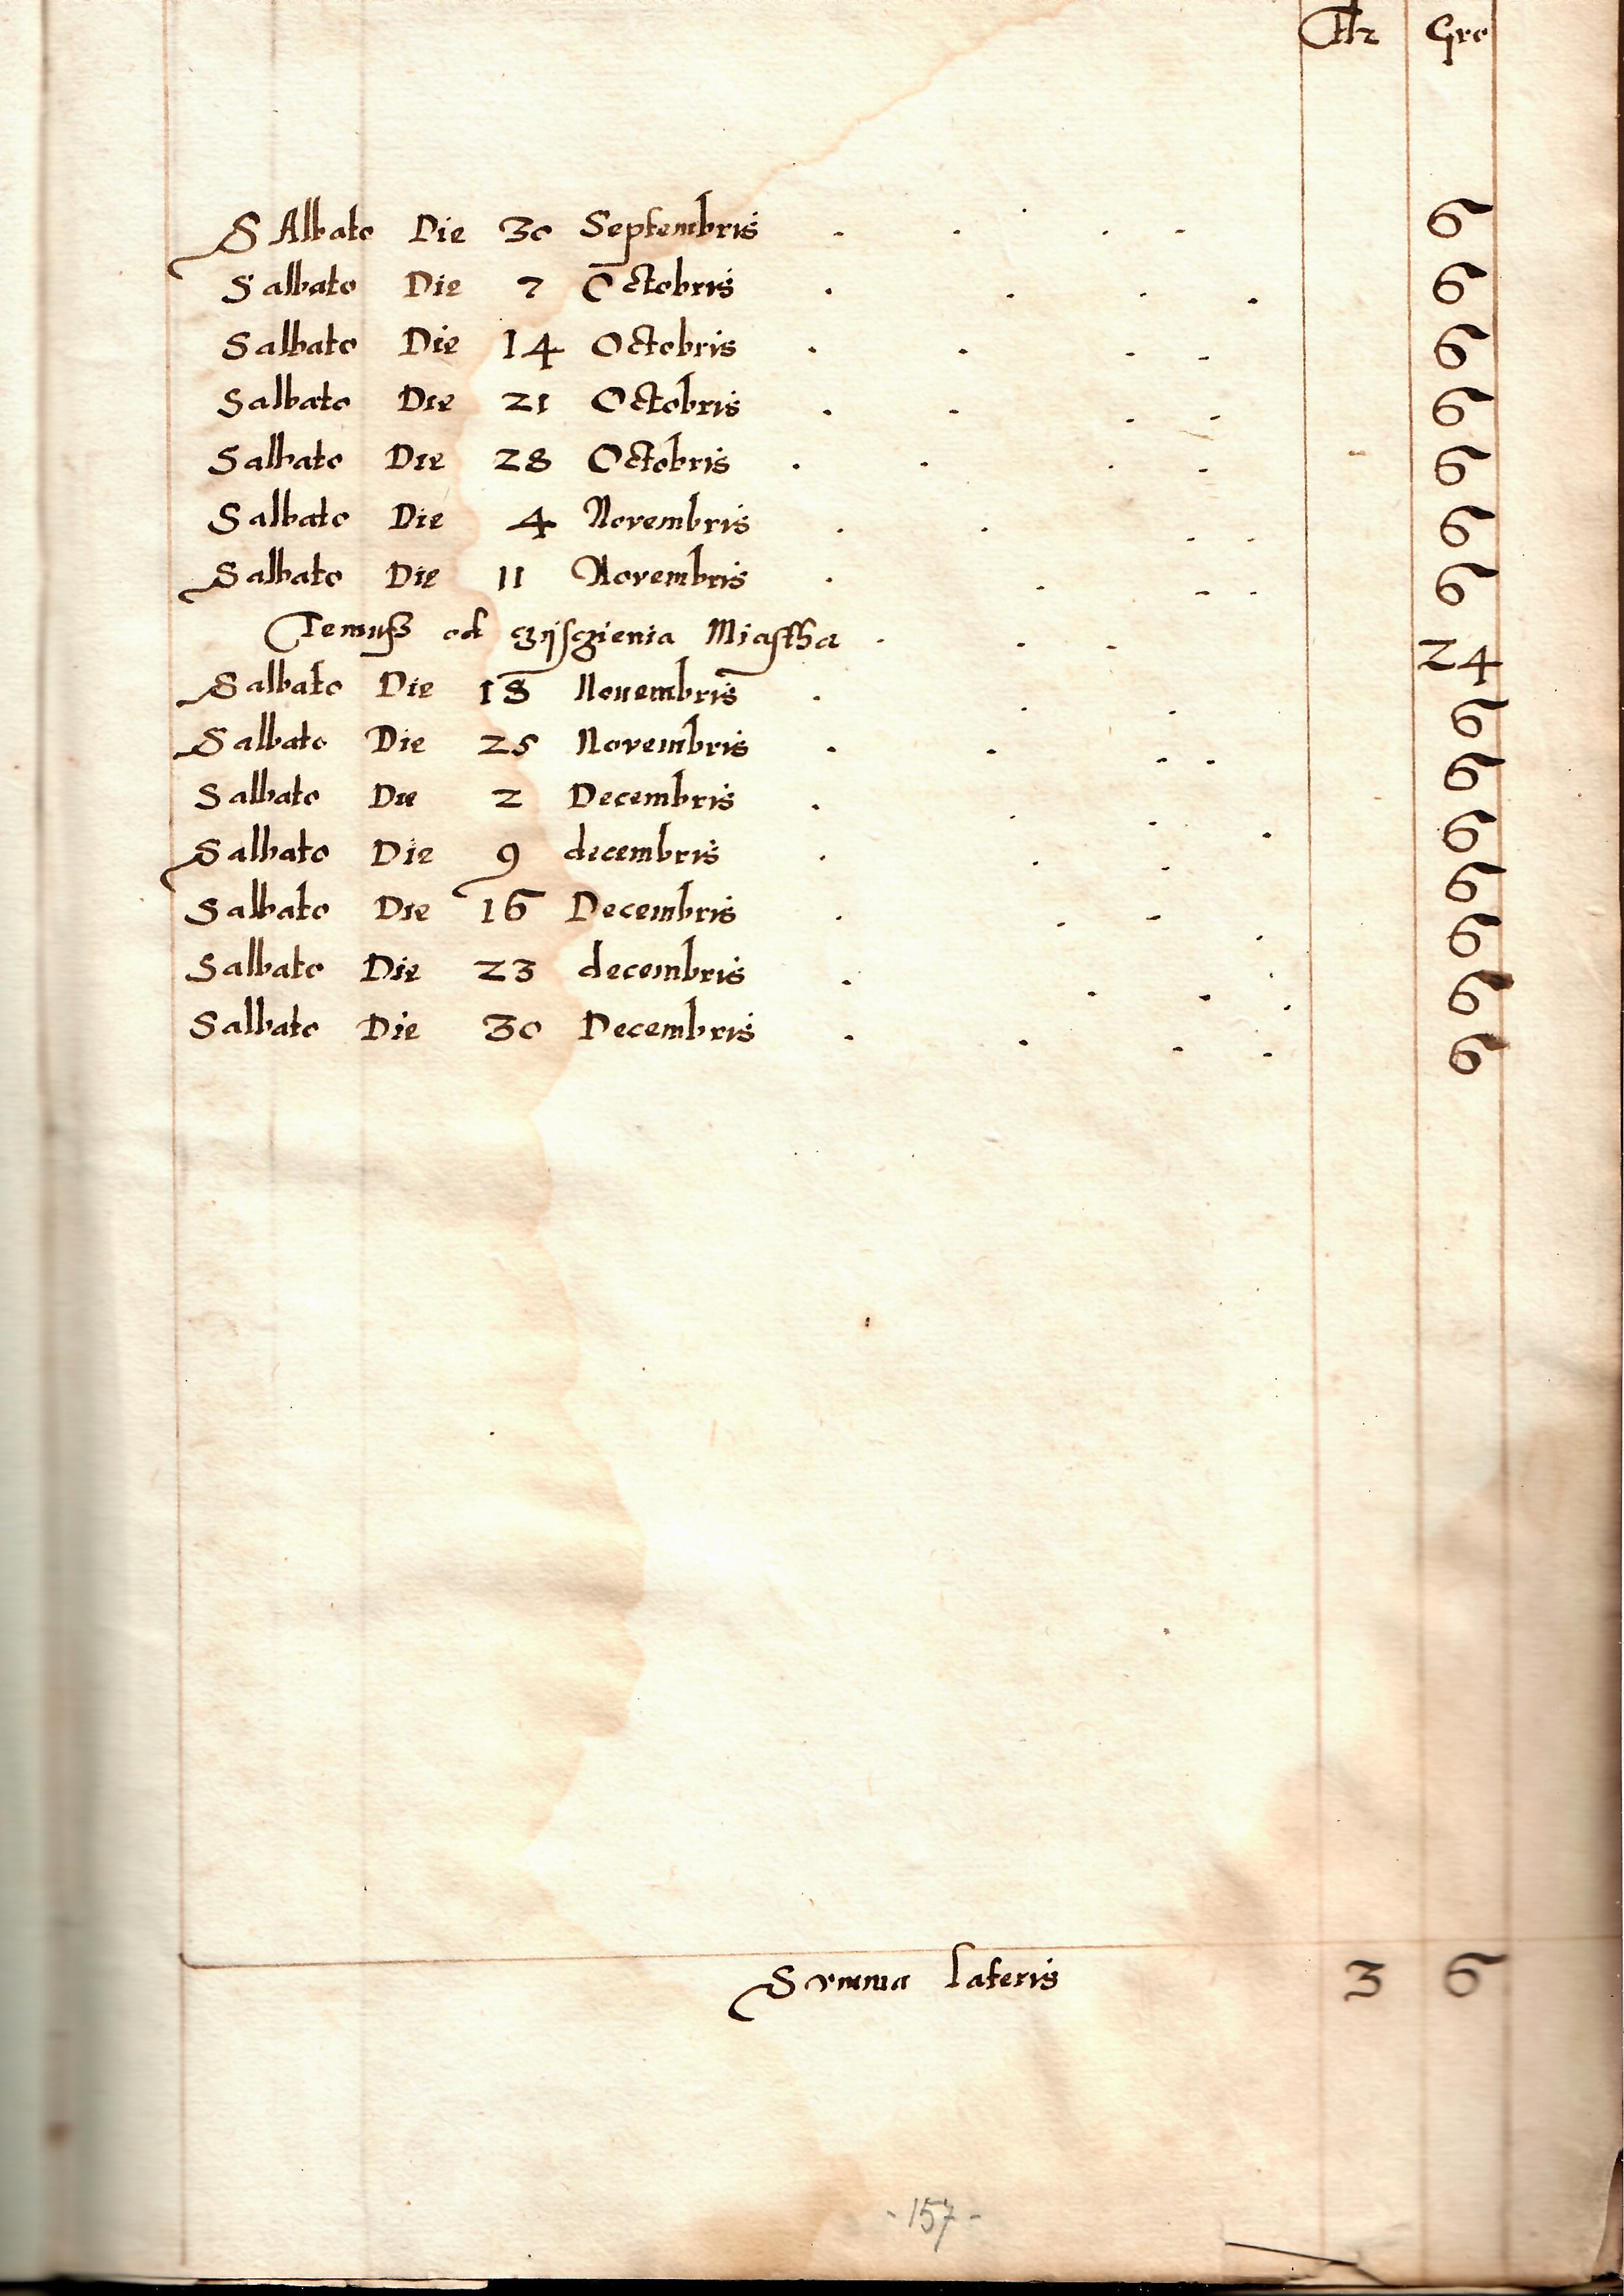 Fl Gro
SAbbato Die 30 Septembris . . . - 6
Sabbato Die 7 Octobris . . . . 6
Sabbato Die 14 Octobris . . . . 6
Sabbato Die 21 Octobris . . . . 6
Sabbato Die 28 Octobris . . . . 6
Sabbato Die 4 Novembris . . . . 6
Sabbato Die 11 Novembris . . . . 6
Temuß od czÿsczienia Miastha . . . 24
Sabbato Die 18 Nouembris . . . 6
Sabbato Die 25 Novembris . . . . 6
Sabbato Die 2 Decembris . . . . 6
Sabbato Die 9 decembris . . . 6
Sabbato Die 16 Decembris . . . . 6
Sabbato Die 23 decembris . . . . 6
Sabbato Die 30 Decembris . . . . 6
Summa lateris 3 6
- 157 -